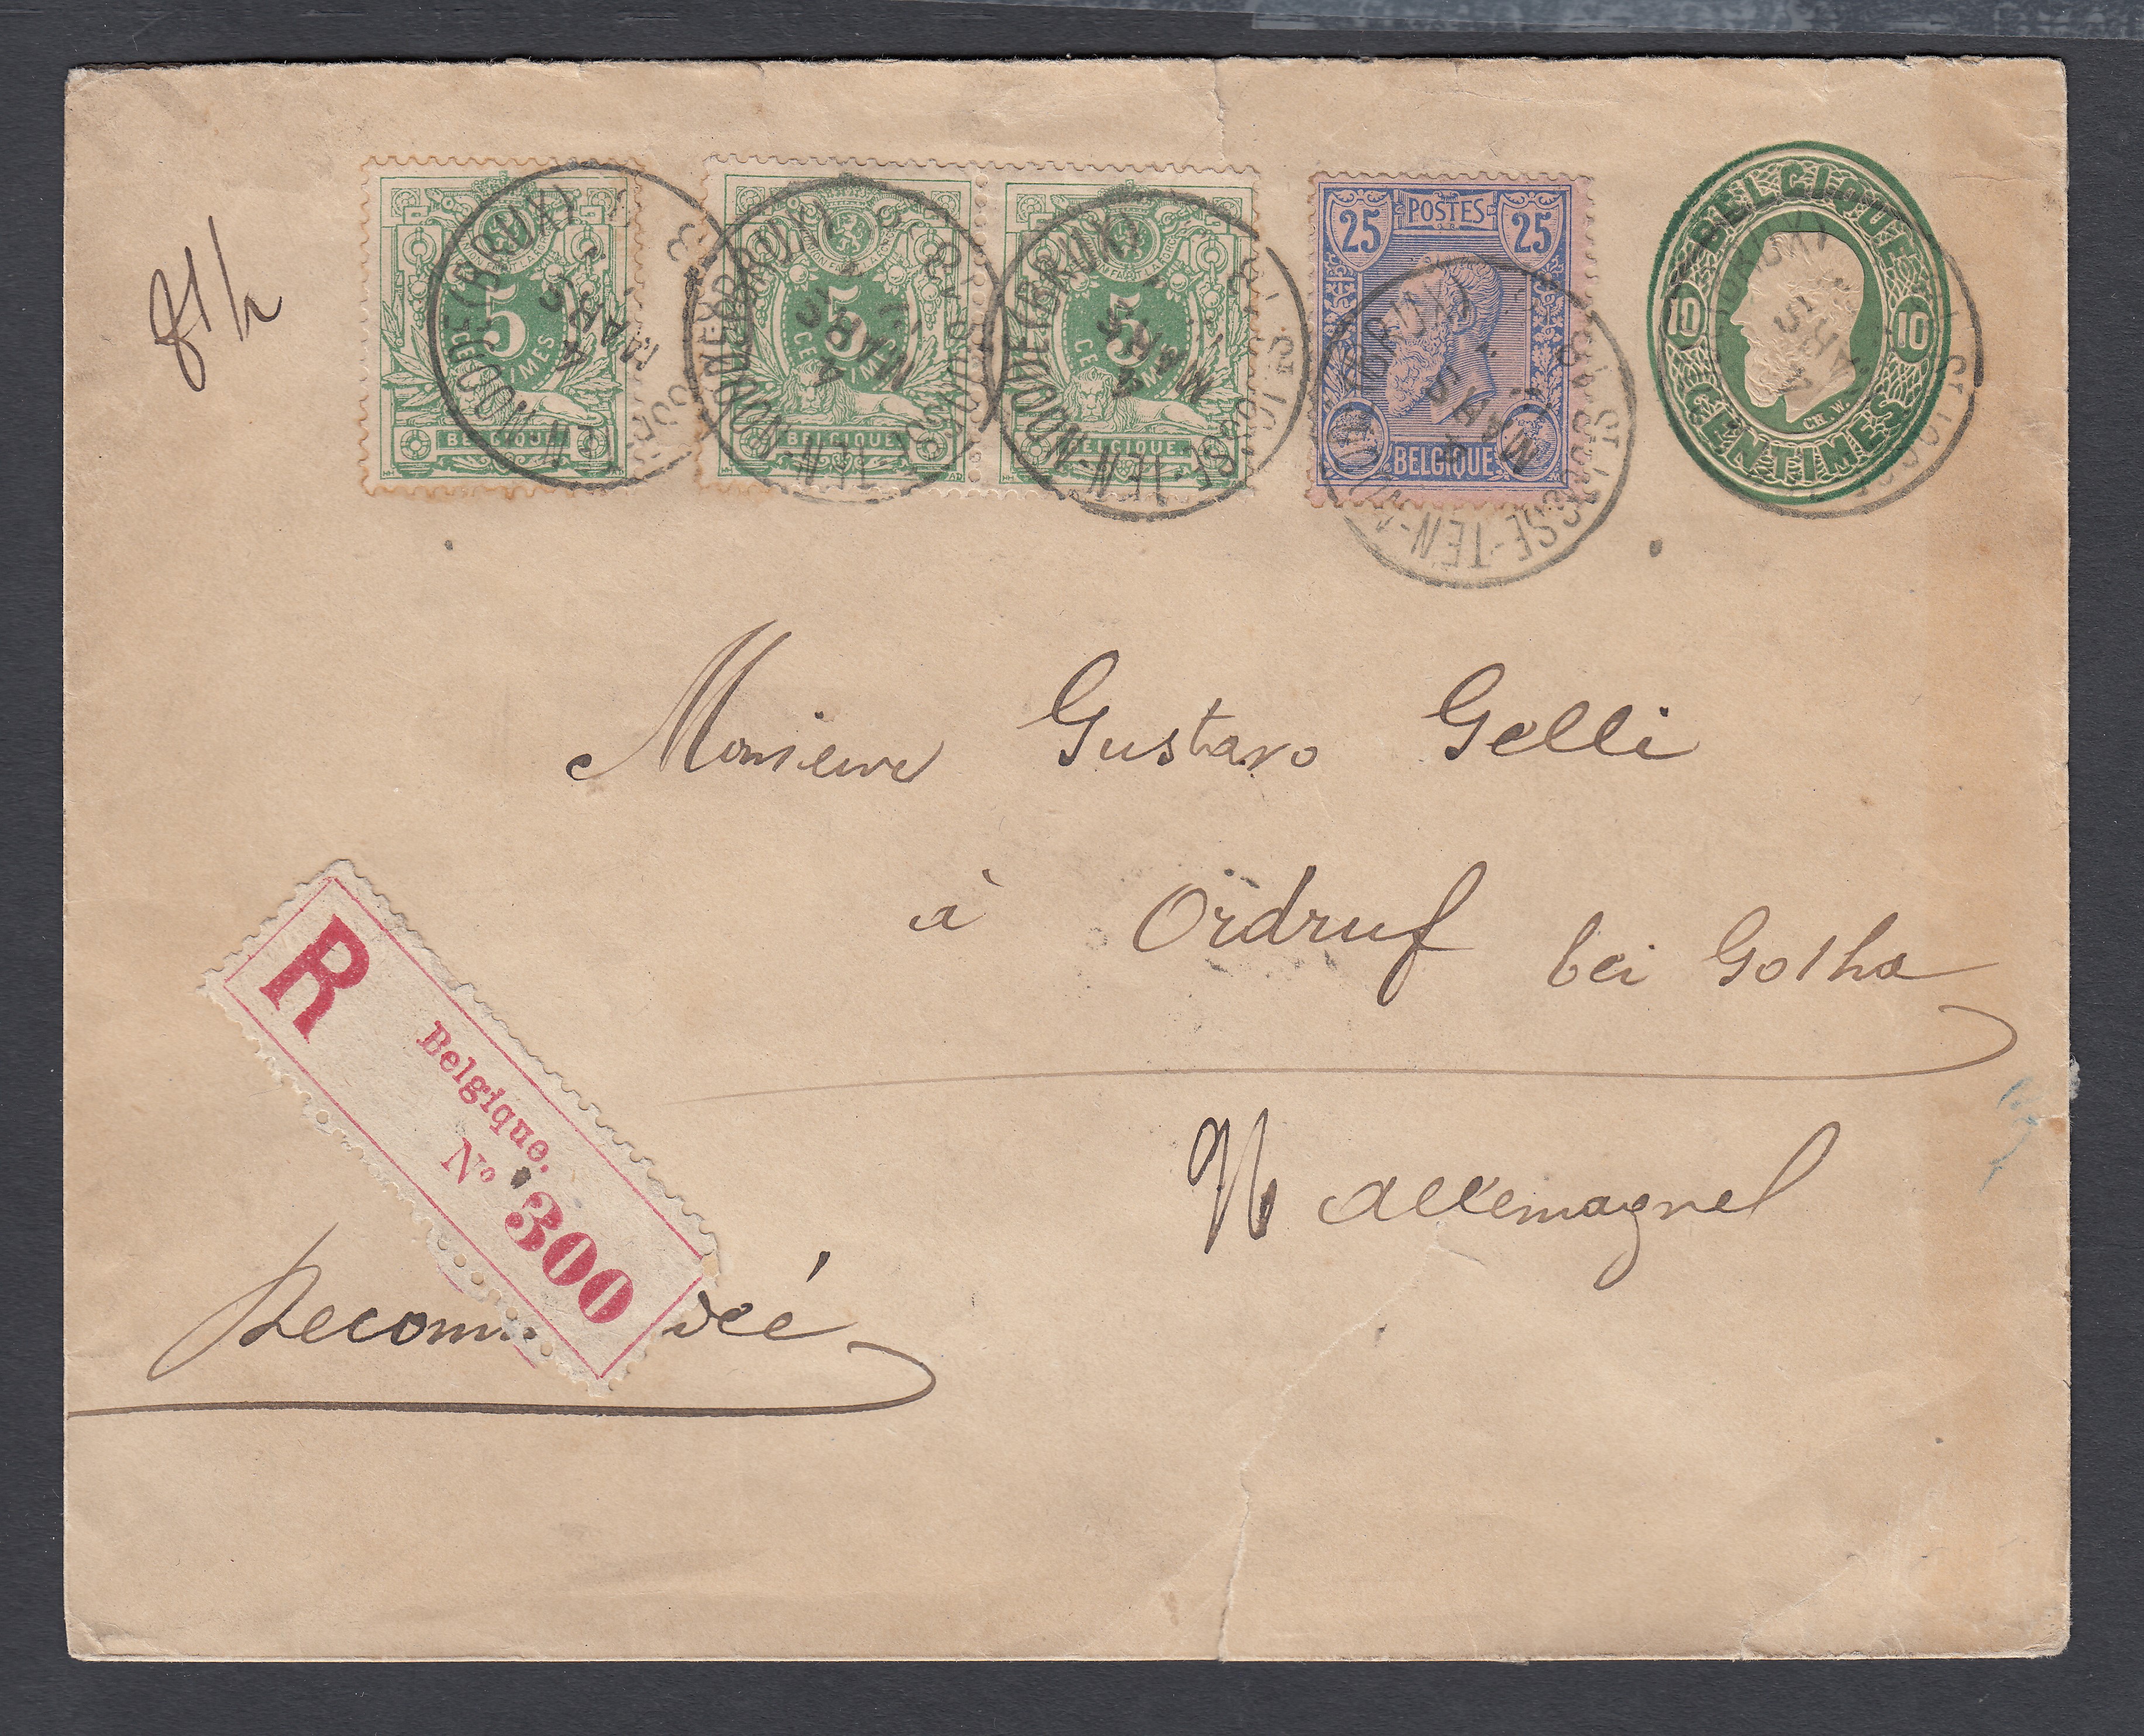 5
CENTIMES
BELGIQUE
5
CENTIMES
BELGIQUE
5
CENTIMES
BELGIQUE
25 POSTES 25
BELGIQUE
BELGIQUE
10 10
CENTIMES
ST JOSSE-TEN-NOODE (BRUX)
4 MARS
Monsieur Gustavo Gelli
à Ordruf bei Gotha
Allemagne
R
Belgique.
No 300
Recom dée